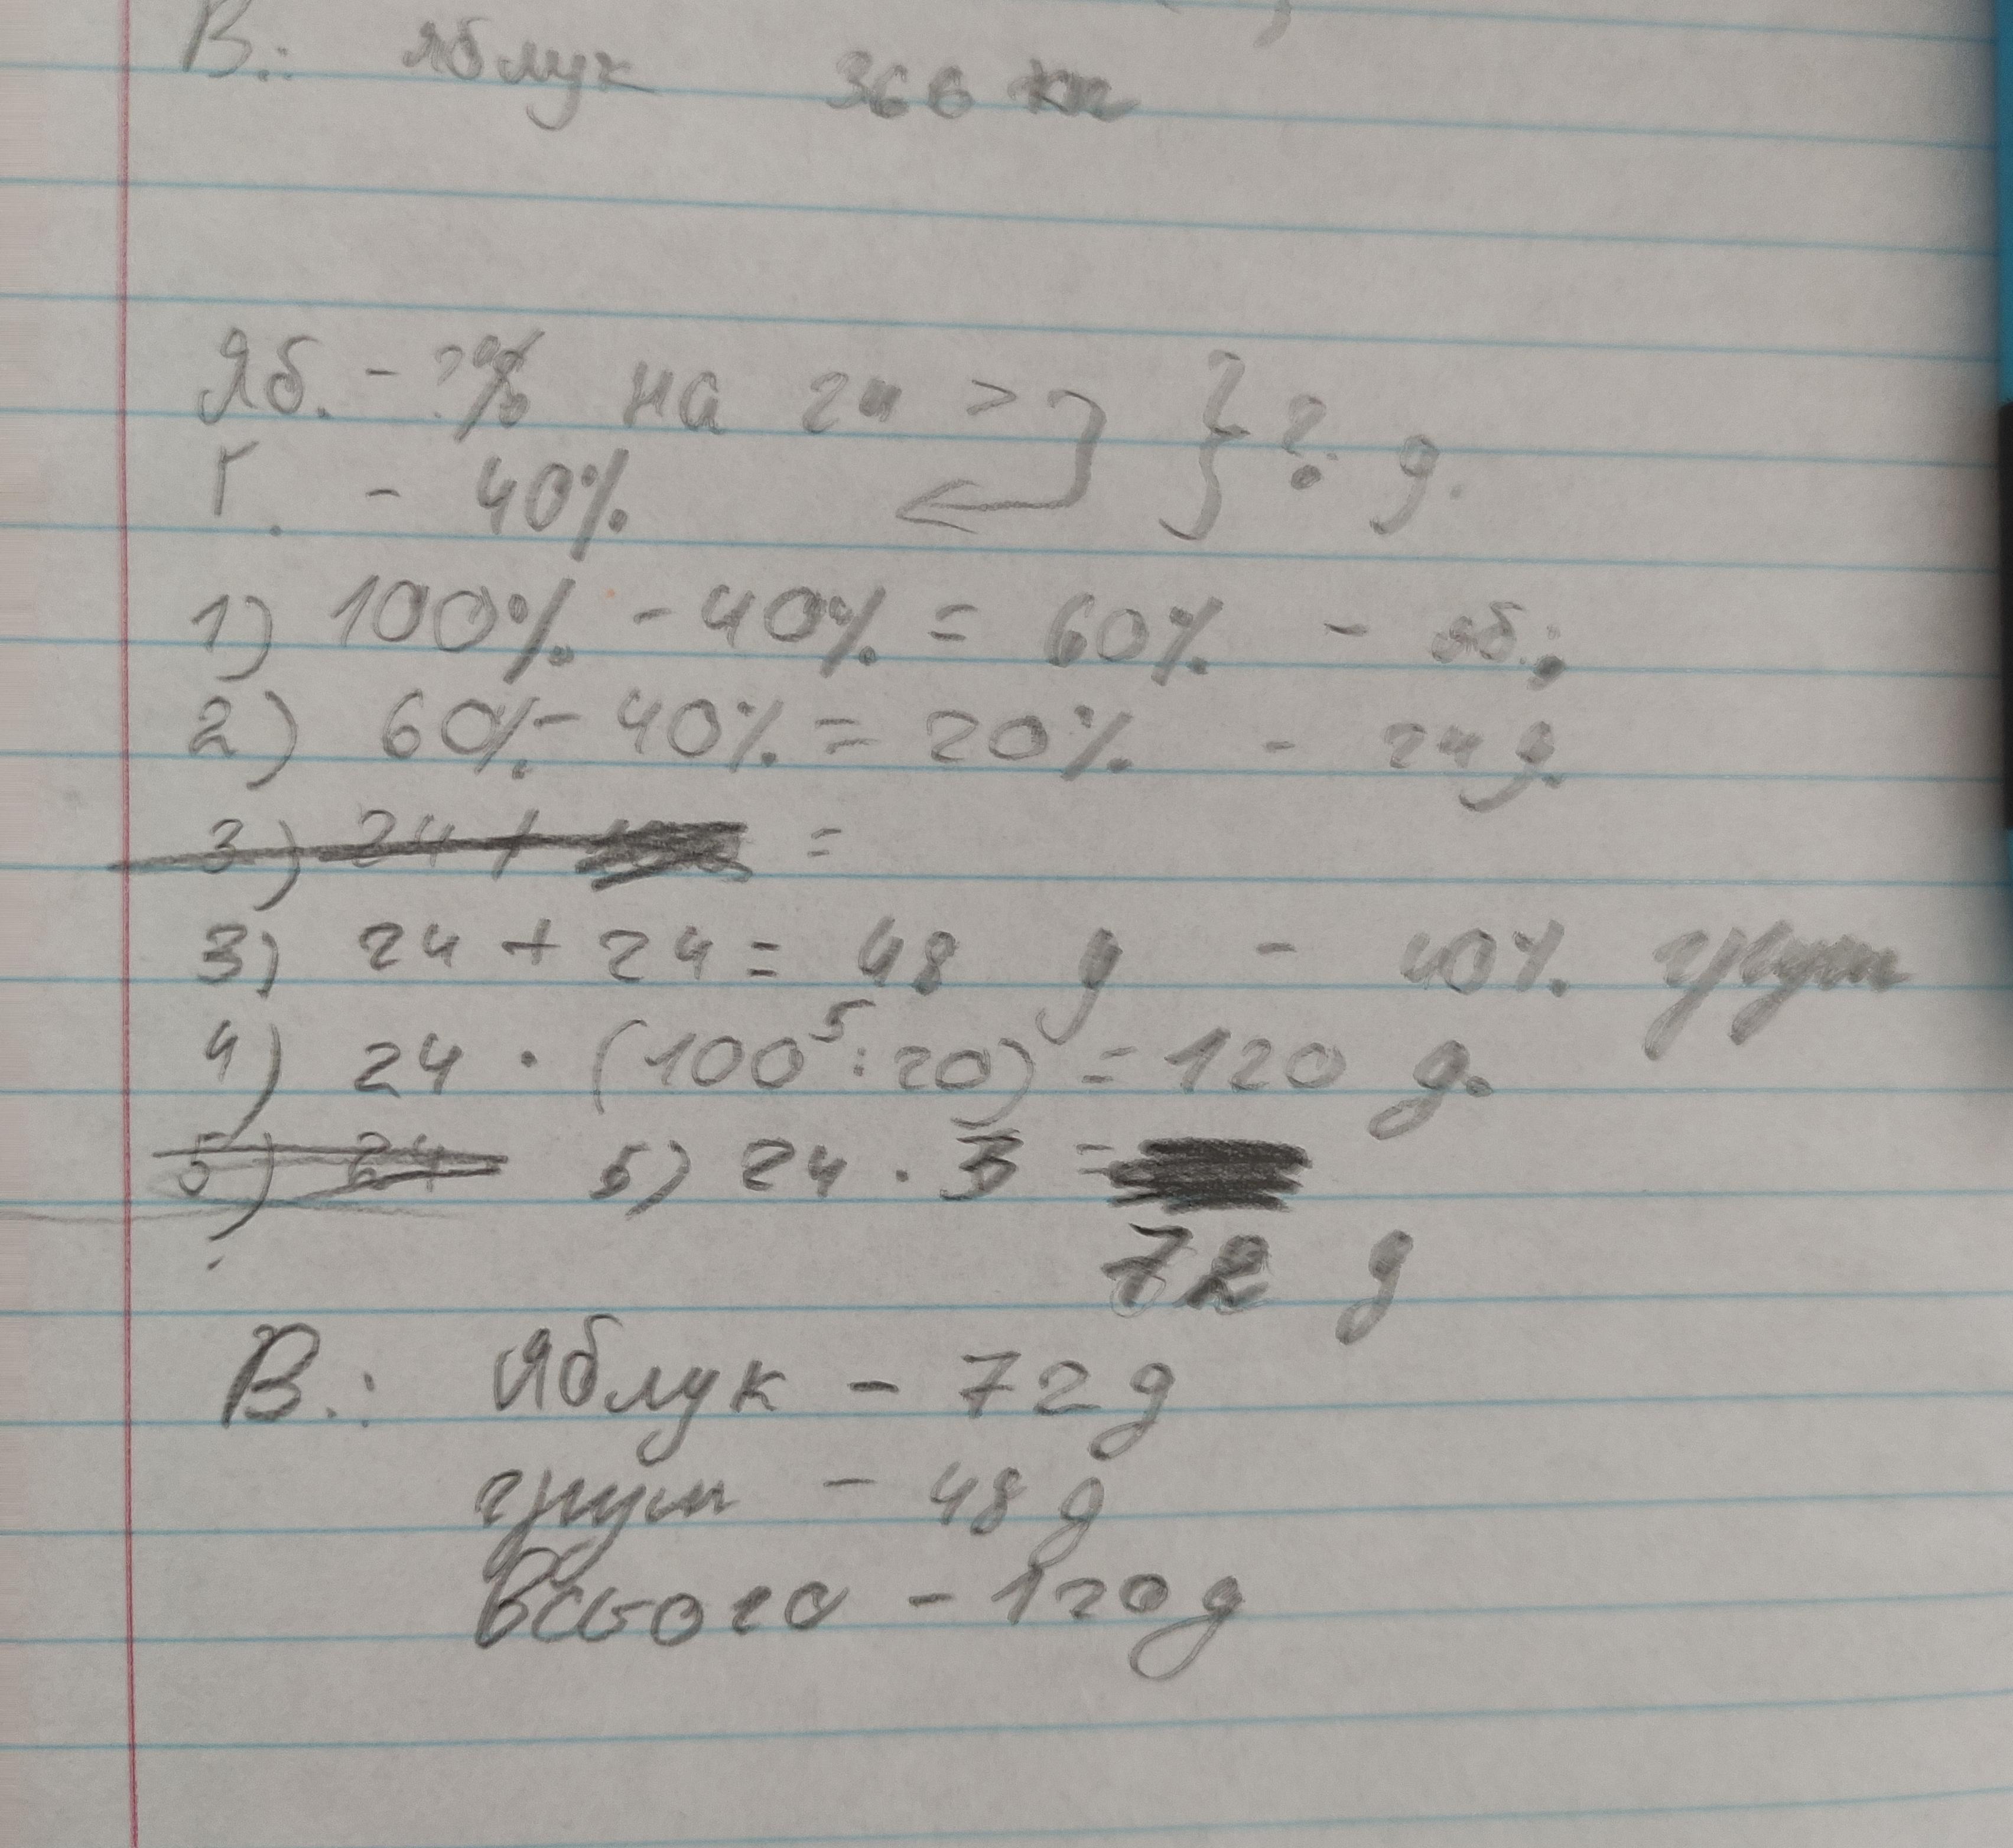 В.: яблук 366 кг
Яб. - ?% на 24 > } ? д.
Г. - 40%
1) 100% - 40% = 60% - яб.;
2) 60% - 40% = 20% - 24 д.
3) 24 + =
3) 24 + 24 = 48 д - 40% груш
4) 24 · (100⁵ : 20) = 120 д.
5) 24 5) 24 · 3 =
72 д
В.: Яблук - 72 д
груш - 48 д
Всього - 120 д